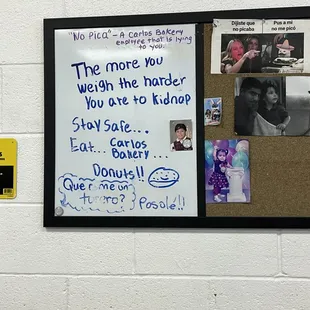 "No Pica" - A Carlos Bakery
employee that is lying
to you.
The more you
weigh the harder
you are to kidnap
Stay Safe...
Eat... Carlos
Bakery...
Donuts!!
Quereme un
turero?
Posole!!
Dijiste que
no picaba
Pus a mi
no me picó